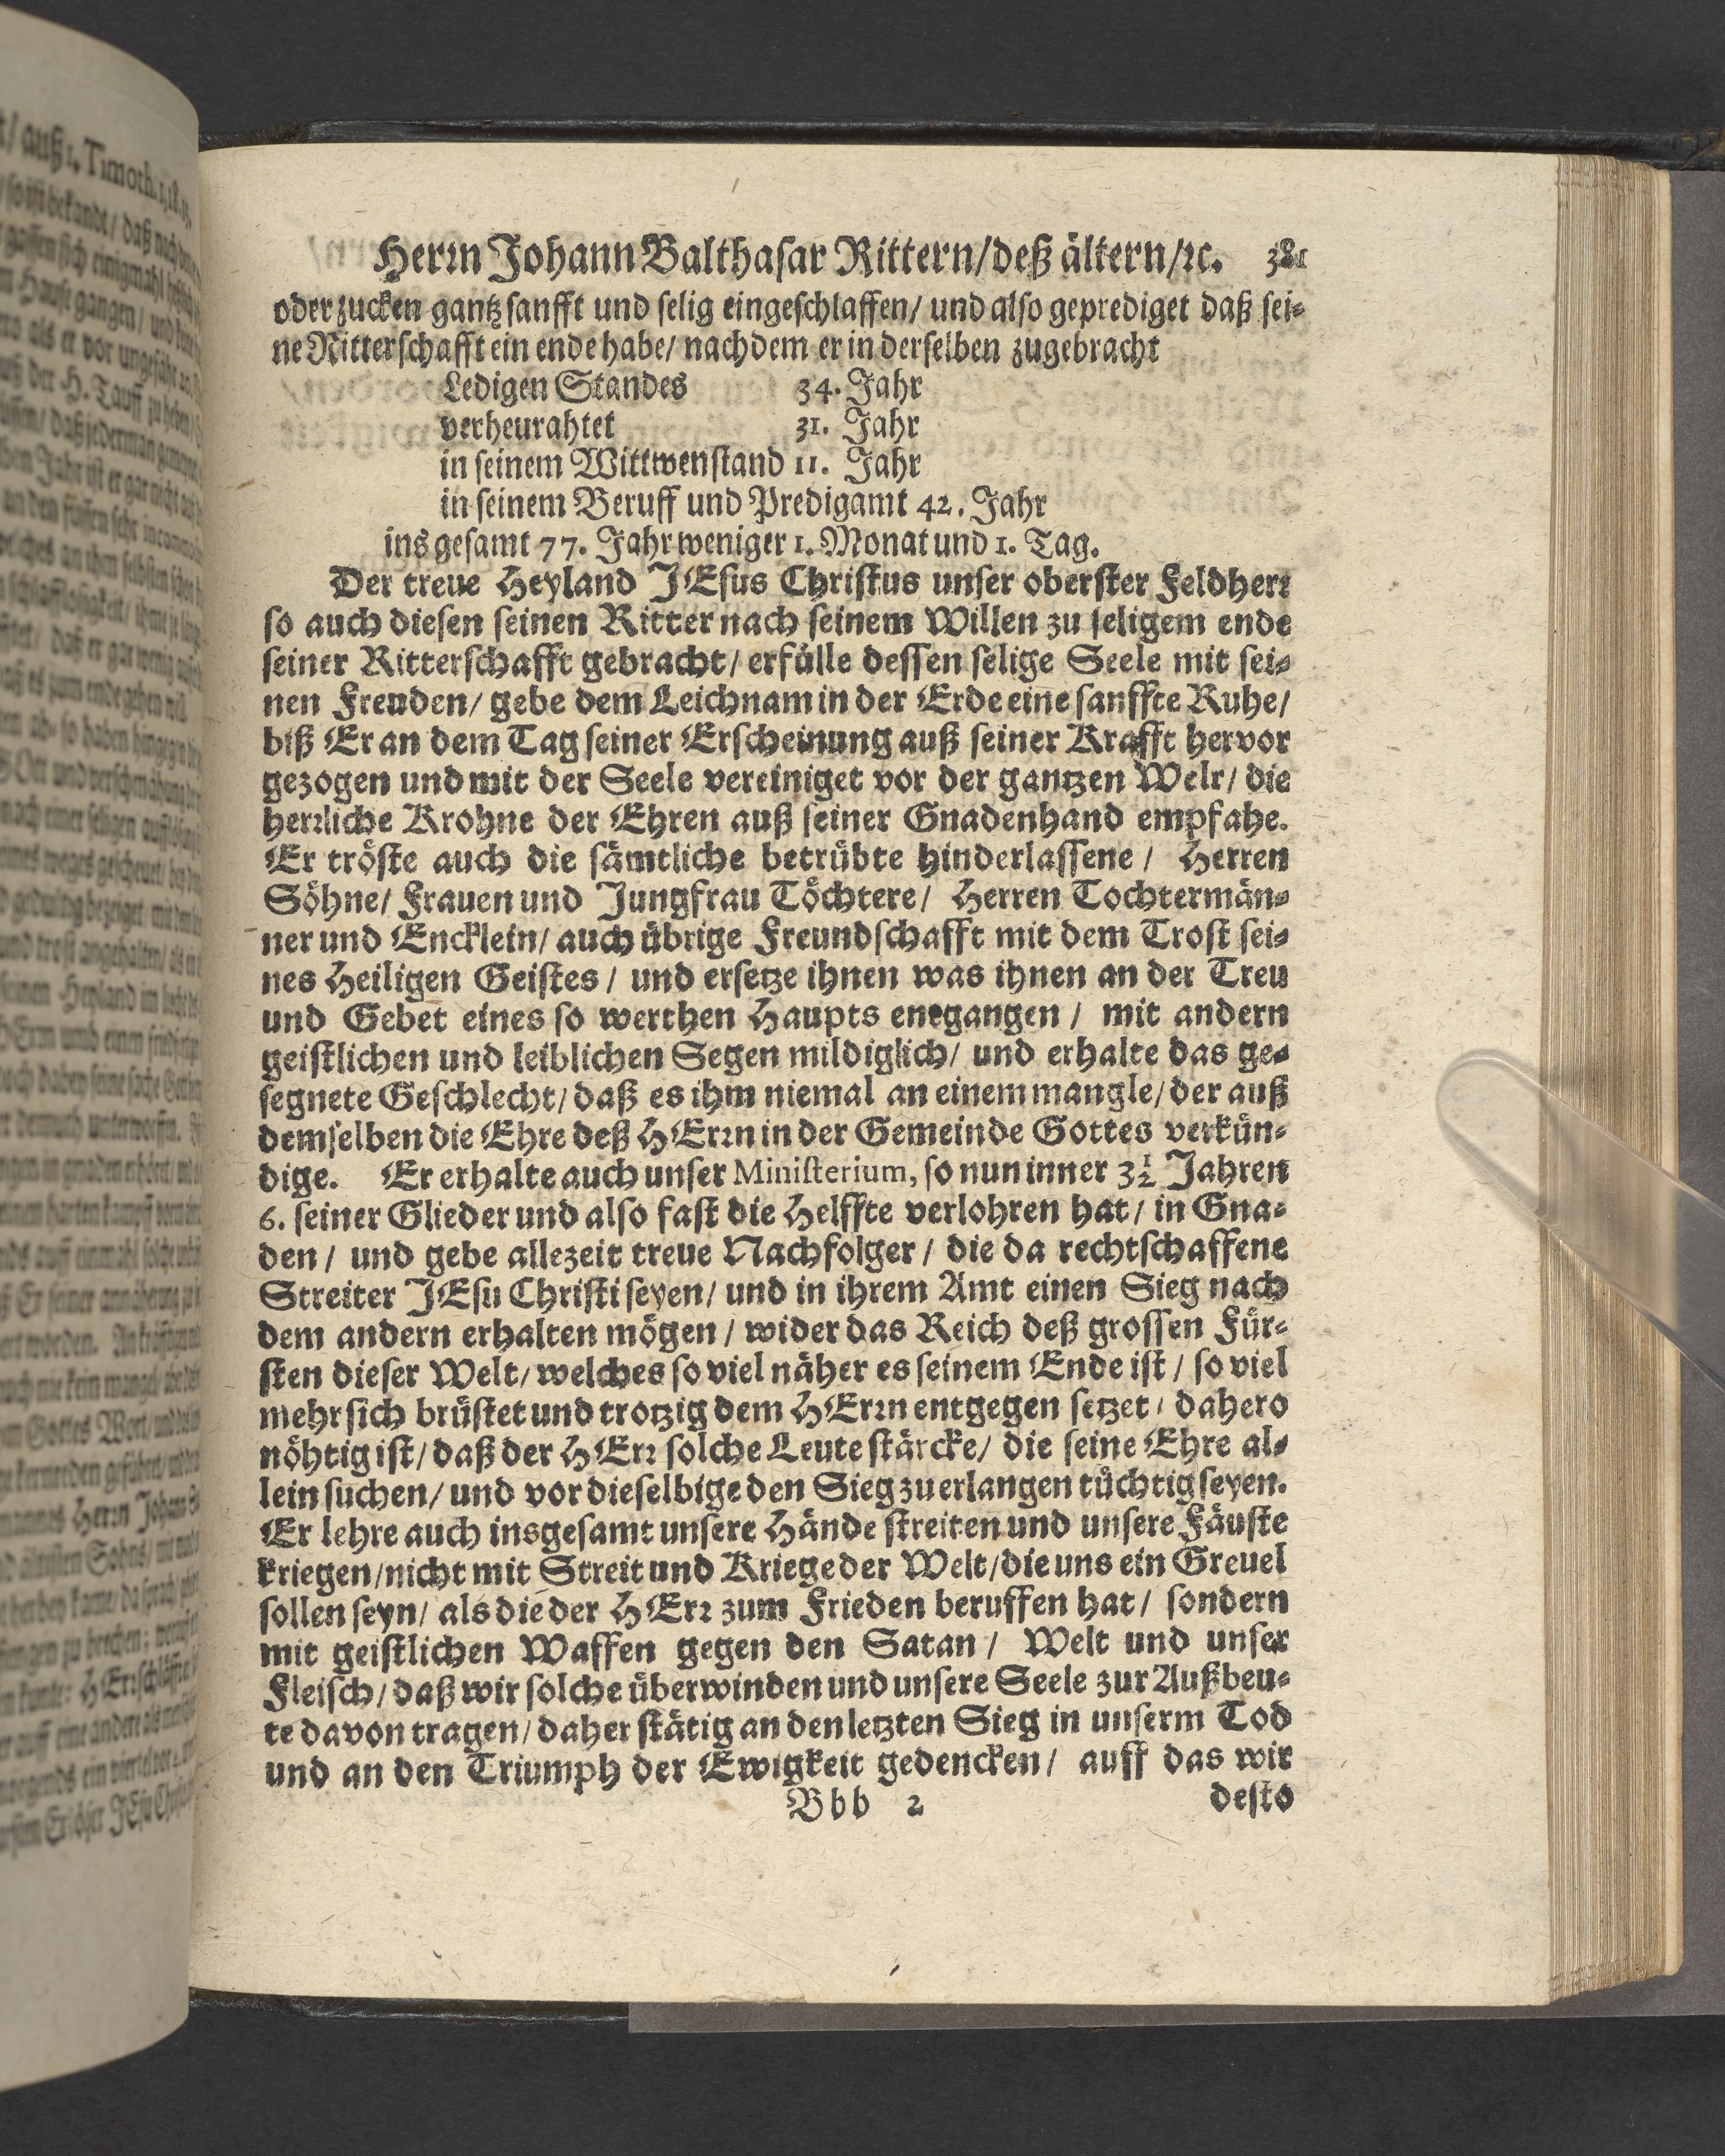 Herꝛn Johann Balthasar Rittern/deß ältern/ꝛc. 381
oder zucken gantz sanfft und selig eingeschlaffen/ und also geprediget daß sei-
ne Ritterschafft ein ende habe/ nachdem er in derselben zugebracht
Ledigen Standes 34. Jahr
verheurahtet 31. Jahr
in seinem Wittwenstand 11. Jahr
in seinem Beruff und Predigamt 42. Jahr
ins gesamt 77. Jahr weniger 1. Monat und 1. Tag.
Der treue Heyland JEsus Christus unser oberster Feldherꝛ
so auch diesen seinen Ritter nach seinem Willen zu seligem ende
seiner Ritterschafft gebracht/ erfülle dessen selige Seele mit sei-
nen Freuden/ gebe dem Leichnam in der Erde eine sanffte Ruhe/
biß Er an dem Tag seiner Erscheinung auß seiner Krafft hervor
gezogen und mit der Seele vereiniget vor der gantzen Welr/ die
herꝛliche Krohne der Ehren auß seiner Gnadenhand empfahe.
Er tröste auch die sämtliche betrübte hinderlassene/ Herren
Söhne/ Frauen und Jungfrau Töchtere/ Herren Tochtermän-
ner und Encklein/ auch übrige Freundschafft mit dem Trost sei-
nes Heiligen Geistes/ und ersetze ihnen was ihnen an der Treu
und Gebet eines so werthen Haupts entgangen/ mit andern
geistlichen und leiblichen Segen mildiglich/ und erhalte das ge-
segnete Geschlecht/ daß es ihm niemal an einem mangle/ der auß
demselben die Ehre deß HErꝛn in der Gemeinde Gottes verkün-
dige. Er erhalte auch unser Ministerium, so nun inner 3½ Jahren
6. seiner Glieder und also fast die Helffte verlohren hat/ in Gna-
den/ und gebe allezeit treue Nachfolger/ die da rechtschaffene
Streiter JEsu Christi seyen/ und in ihrem Amt einen Sieg nach
dem andern erhalten mögen/ wider das Reich deß grossen Für-
sten dieser Welt/ welches so viel näher es seinem Ende ist/ so viel
mehr sich brüstet und trotzig dem HErꝛn entgegen setzet/ dahero
nöhtig ist/ daß der HErꝛ solche Leute stärcke/ die seine Ehre al-
lein suchen/ und vor dieselbige den Sieg zu erlangen tüchtig seyen.
Er lehre auch insgesamt unsere Hände streiten und unsere Fäuste
kriegen/nicht mit Streit und Kriege der Welt/die uns ein Greuel
sollen seyn/ als die der HErꝛ zum Frieden beruffen hat/ sondern
mit geistlichen Waffen gegen den Satan/ Welt und unser
Fleisch/ daß wir solche überwinden und unsere Seele zur Außbeu-
te davon tragen/ daher stätig an den letzten Sieg in unserm Tod
und an den Triumph der Ewigkeit gedencken/ auff das wir
Bbb 2 desto